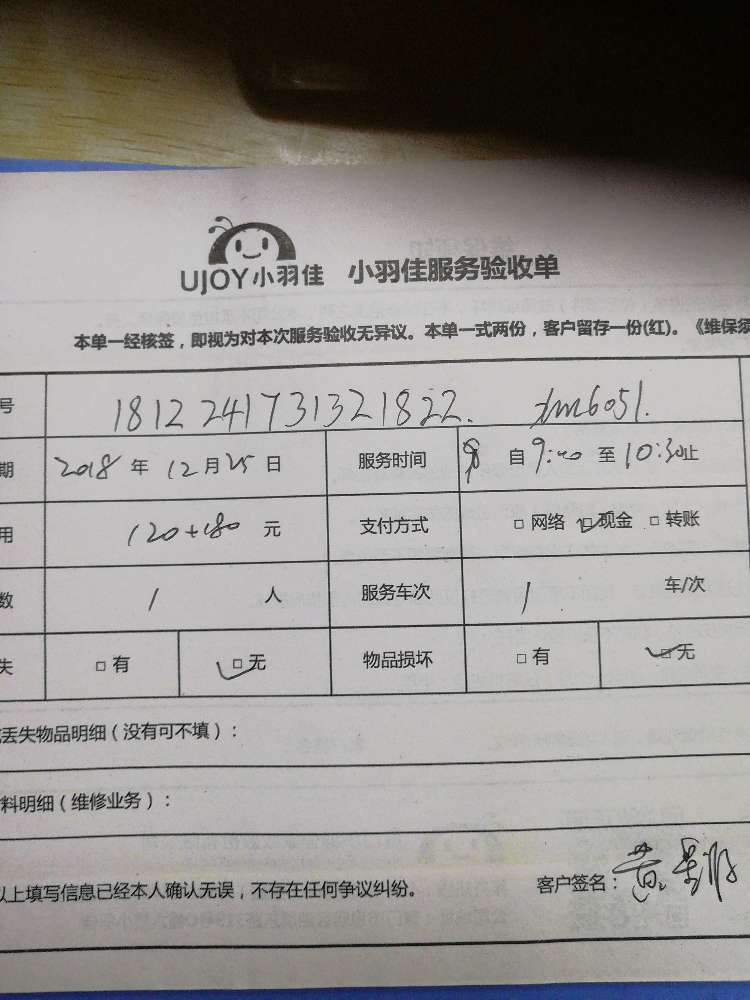 UJOY小羽佳 小羽佳服务验收单
本单一经核签，即视为对本次服务验收无异议。本单一式两份，客户留存一份(红)。《维保须
号 1812241731321822. xm6051.
期 2018 年 12 月 25 日 服务时间 自 9:00 至 10:30 止
用 120+180 元 支付方式 □ 网络 □ 现金 □ 转账
数 1 人 服务车次 1 车/次
失 □ 有 □ 无 物品损坏 □ 有 □ 无
丢失物品明细（没有可不填）：
料明细（维修业务）：
以上填写信息已经本人确认无误，不存在任何争议纠纷。 客户签名：黄